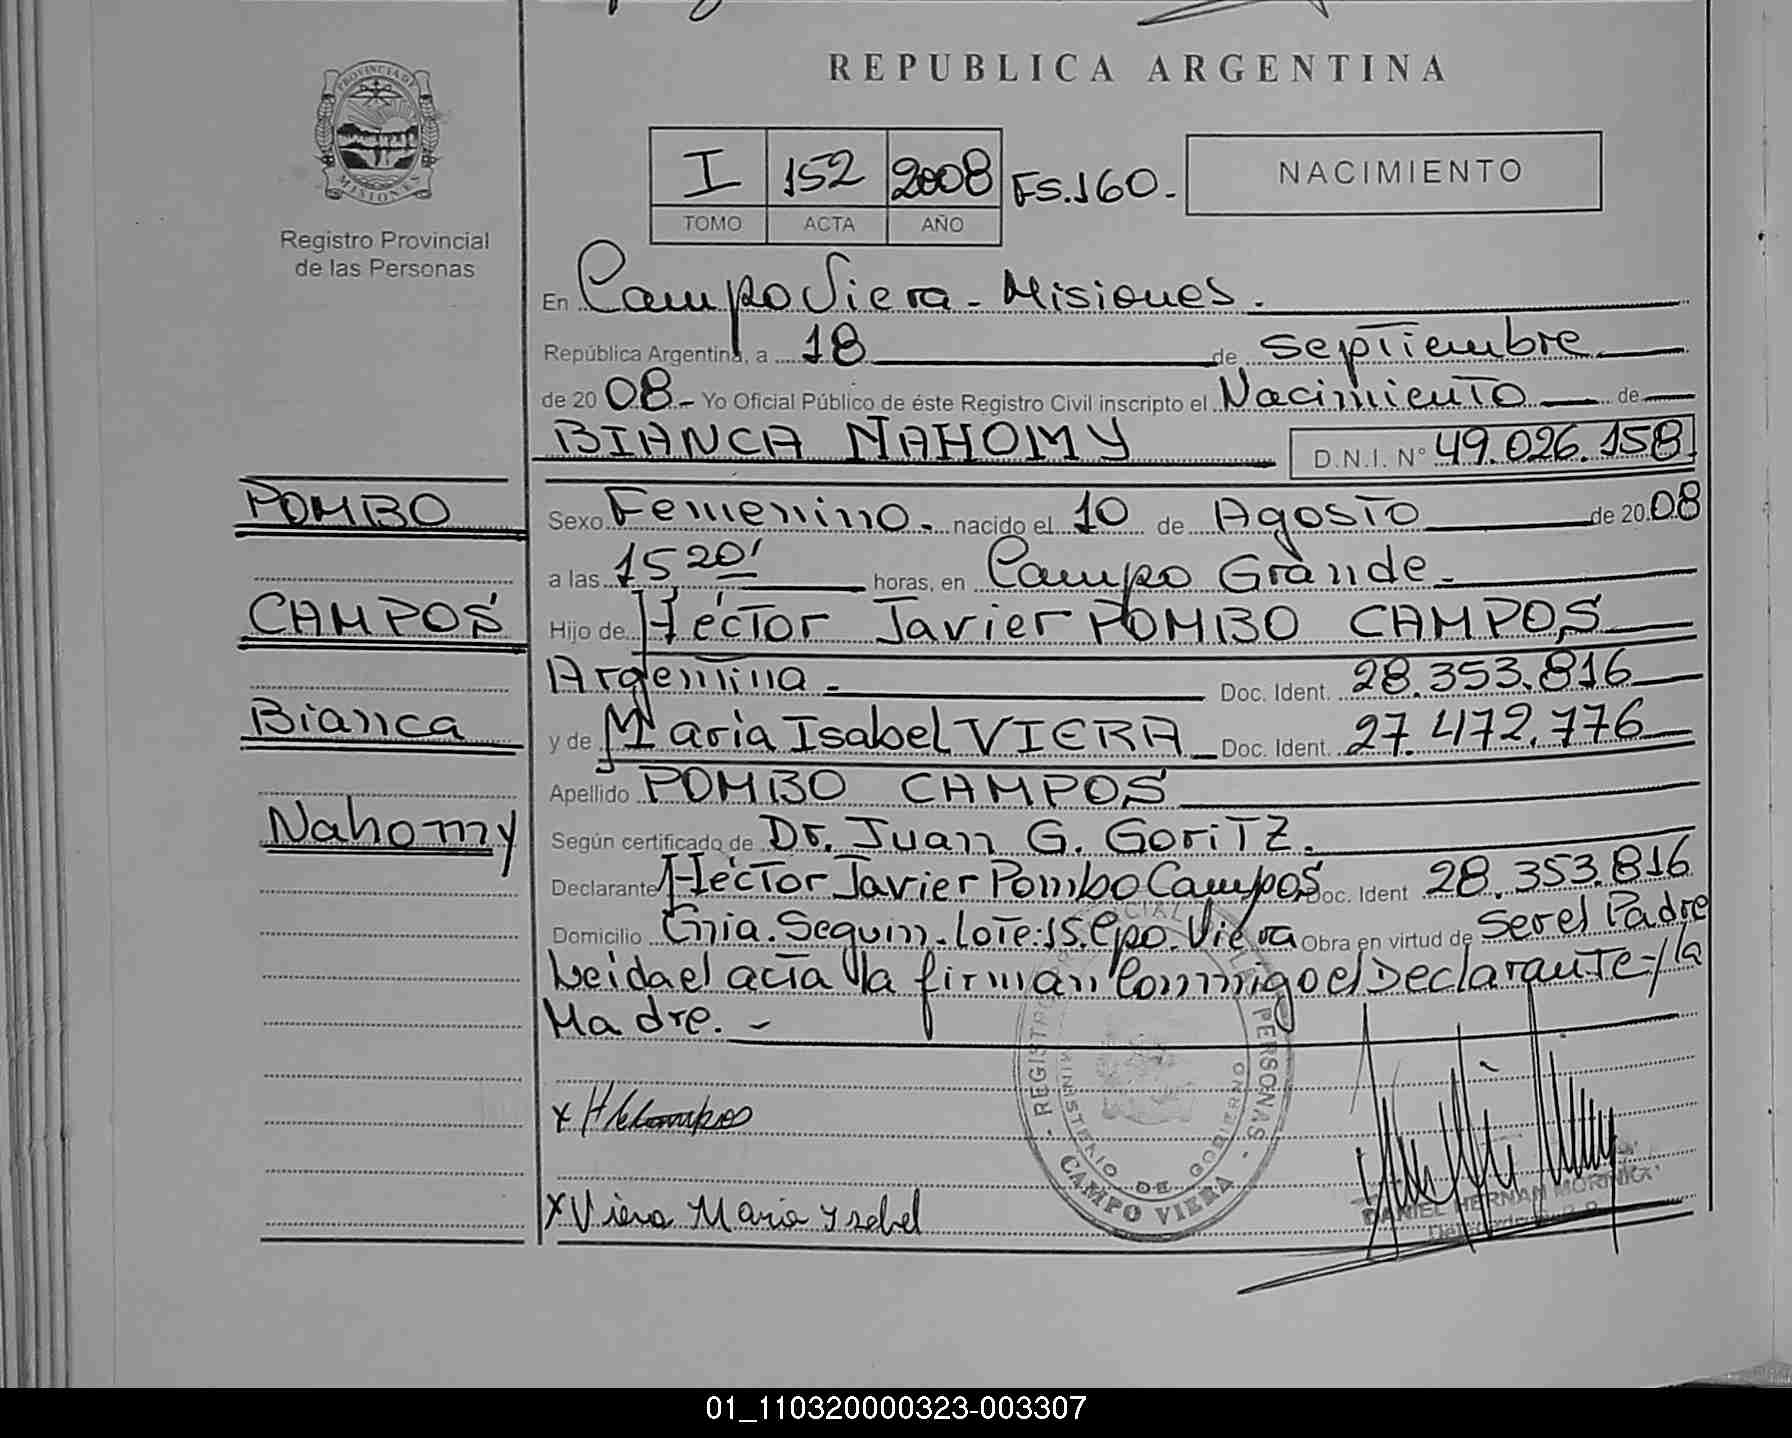 REPUBLICA ARGENTINA
PROVINCIA DE
MISIONES
Registro Provincial
de las Personas
I 152 2008 FS.160.-
TOMO ACTA AÑO
NACIMIENTO
En Campo Viera - Misiones.
República Argentina, a 18 de septiembre
de 20 08.- Yo Oficial Público de éste Registro Civil inscripto el Nacimiento de
BIANCA NAHOMY D.N.I. N° 49.026.158
POMBO
CAMPOS
Bianca
Nahomy
Sexo Femenino.- nacido el 10 de Agosto de 20 08
a las 15 20' horas, en Campo Grande.
Hijo de Héctor Javier POMBO CAMPOS
Argentina - Doc. Ident. 28.353.816
y de Maria Isabel VIERA Doc. Ident. 27.472.776
Apellido POMBO CAMPOS
Según certificado de Dr. Juan G. GoriTZ.
Declarante Héctor Javier Pombo Campos Doc. Ident 28.353.816
Domicilio Cnia. Seguin. Lote: 15. Cpo. Viera Obra en virtud de Ser el Padre
Leida el acta la firman Conmigo el Declarante y la
Madre. -
x H Campos
x Viera Maria Ysabel
REGISTRO PERSONAS
MINISTERIO DE GOBIERNO
CAMPO VIERA
DANIEL HERNAN
01_110320000323-003307